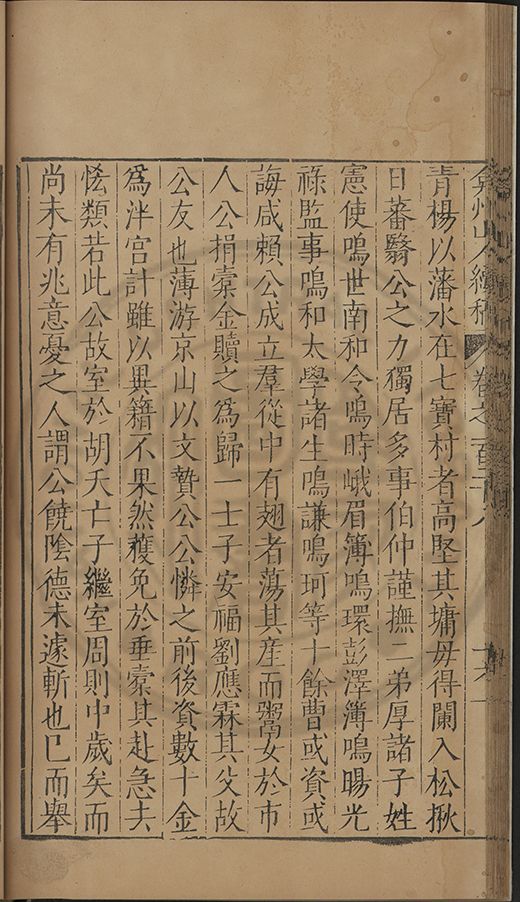 弇州山人續稿 卷之一百二十八
青楊以藩水在七寶村者高堅其墉毋得闌入松揪
日蕃翳公之力獨居多事伯仲謹撫二弟厚諸子姓
憲使鳴世南和令鳴時峨眉簿鳴環彭澤簿鳴暘光
祿監事鳴和太學諸生鳴謙鳴珂等十餘曹或資或
誨咸賴公成立羣從中有翅者蕩其產而鬻女於市
人公捐橐金贖之爲歸一士子安福劉應霖其父故
公友也薄游京山以文贄公公憐之前後資數十金
爲泮宮計雖以異籍不果然穫免於垂橐其赴急夫
恡類若此公故室於胡夭亡子繼室周則中歲矣而
尚未有兆意憂之人謂公饒陰德未遽斬也已而舉